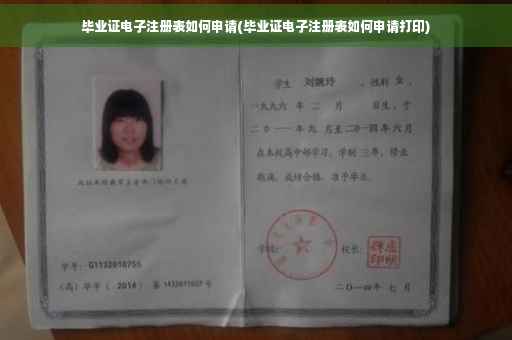 毕业证电子注册表如何申请(毕业证电子注册表如何申请打印)
学生 刘婉玲 ，性别 女 ，
一九九六 年 二 月 日生，于
二〇一一年九 月至二〇一四年六月
在本校高中部学习，学制 三年，修业
期满，成绩合格，准予毕业。
学校： 校长：
二〇一四年 七 月
学号： G1132010755
（高）毕字（ 2014 ）第 1432011027 号